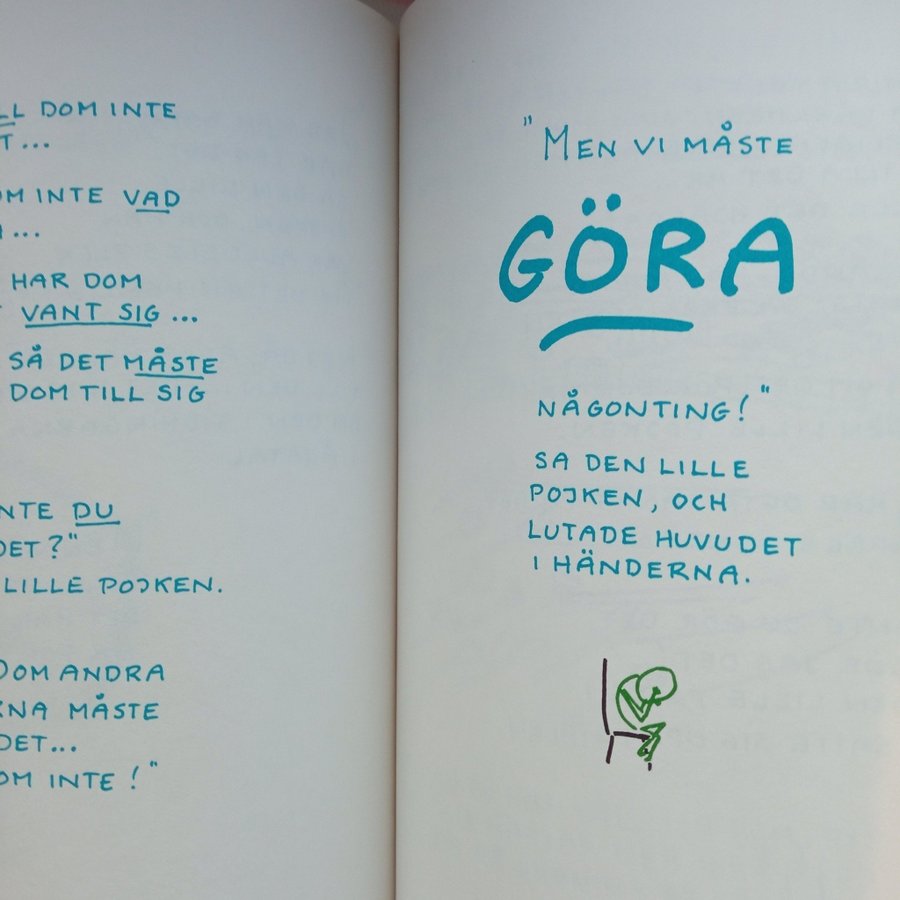 DOM INTE
...
INTE VAD
...
HAR DOM
VANT SIG ...
SÅ DET MÅSTE
DOM TILL SIG
DU
DET?"
LILLE POJKEN.
DOM ANDRA
MÅSTE
DET...
INTE!"
"MEN VI MÅSTE
GÖRA
NÅGONTING!"
SA DEN LILLE
POJKEN, OCH
LUTADE HUVUDET
I HÄNDERNA.